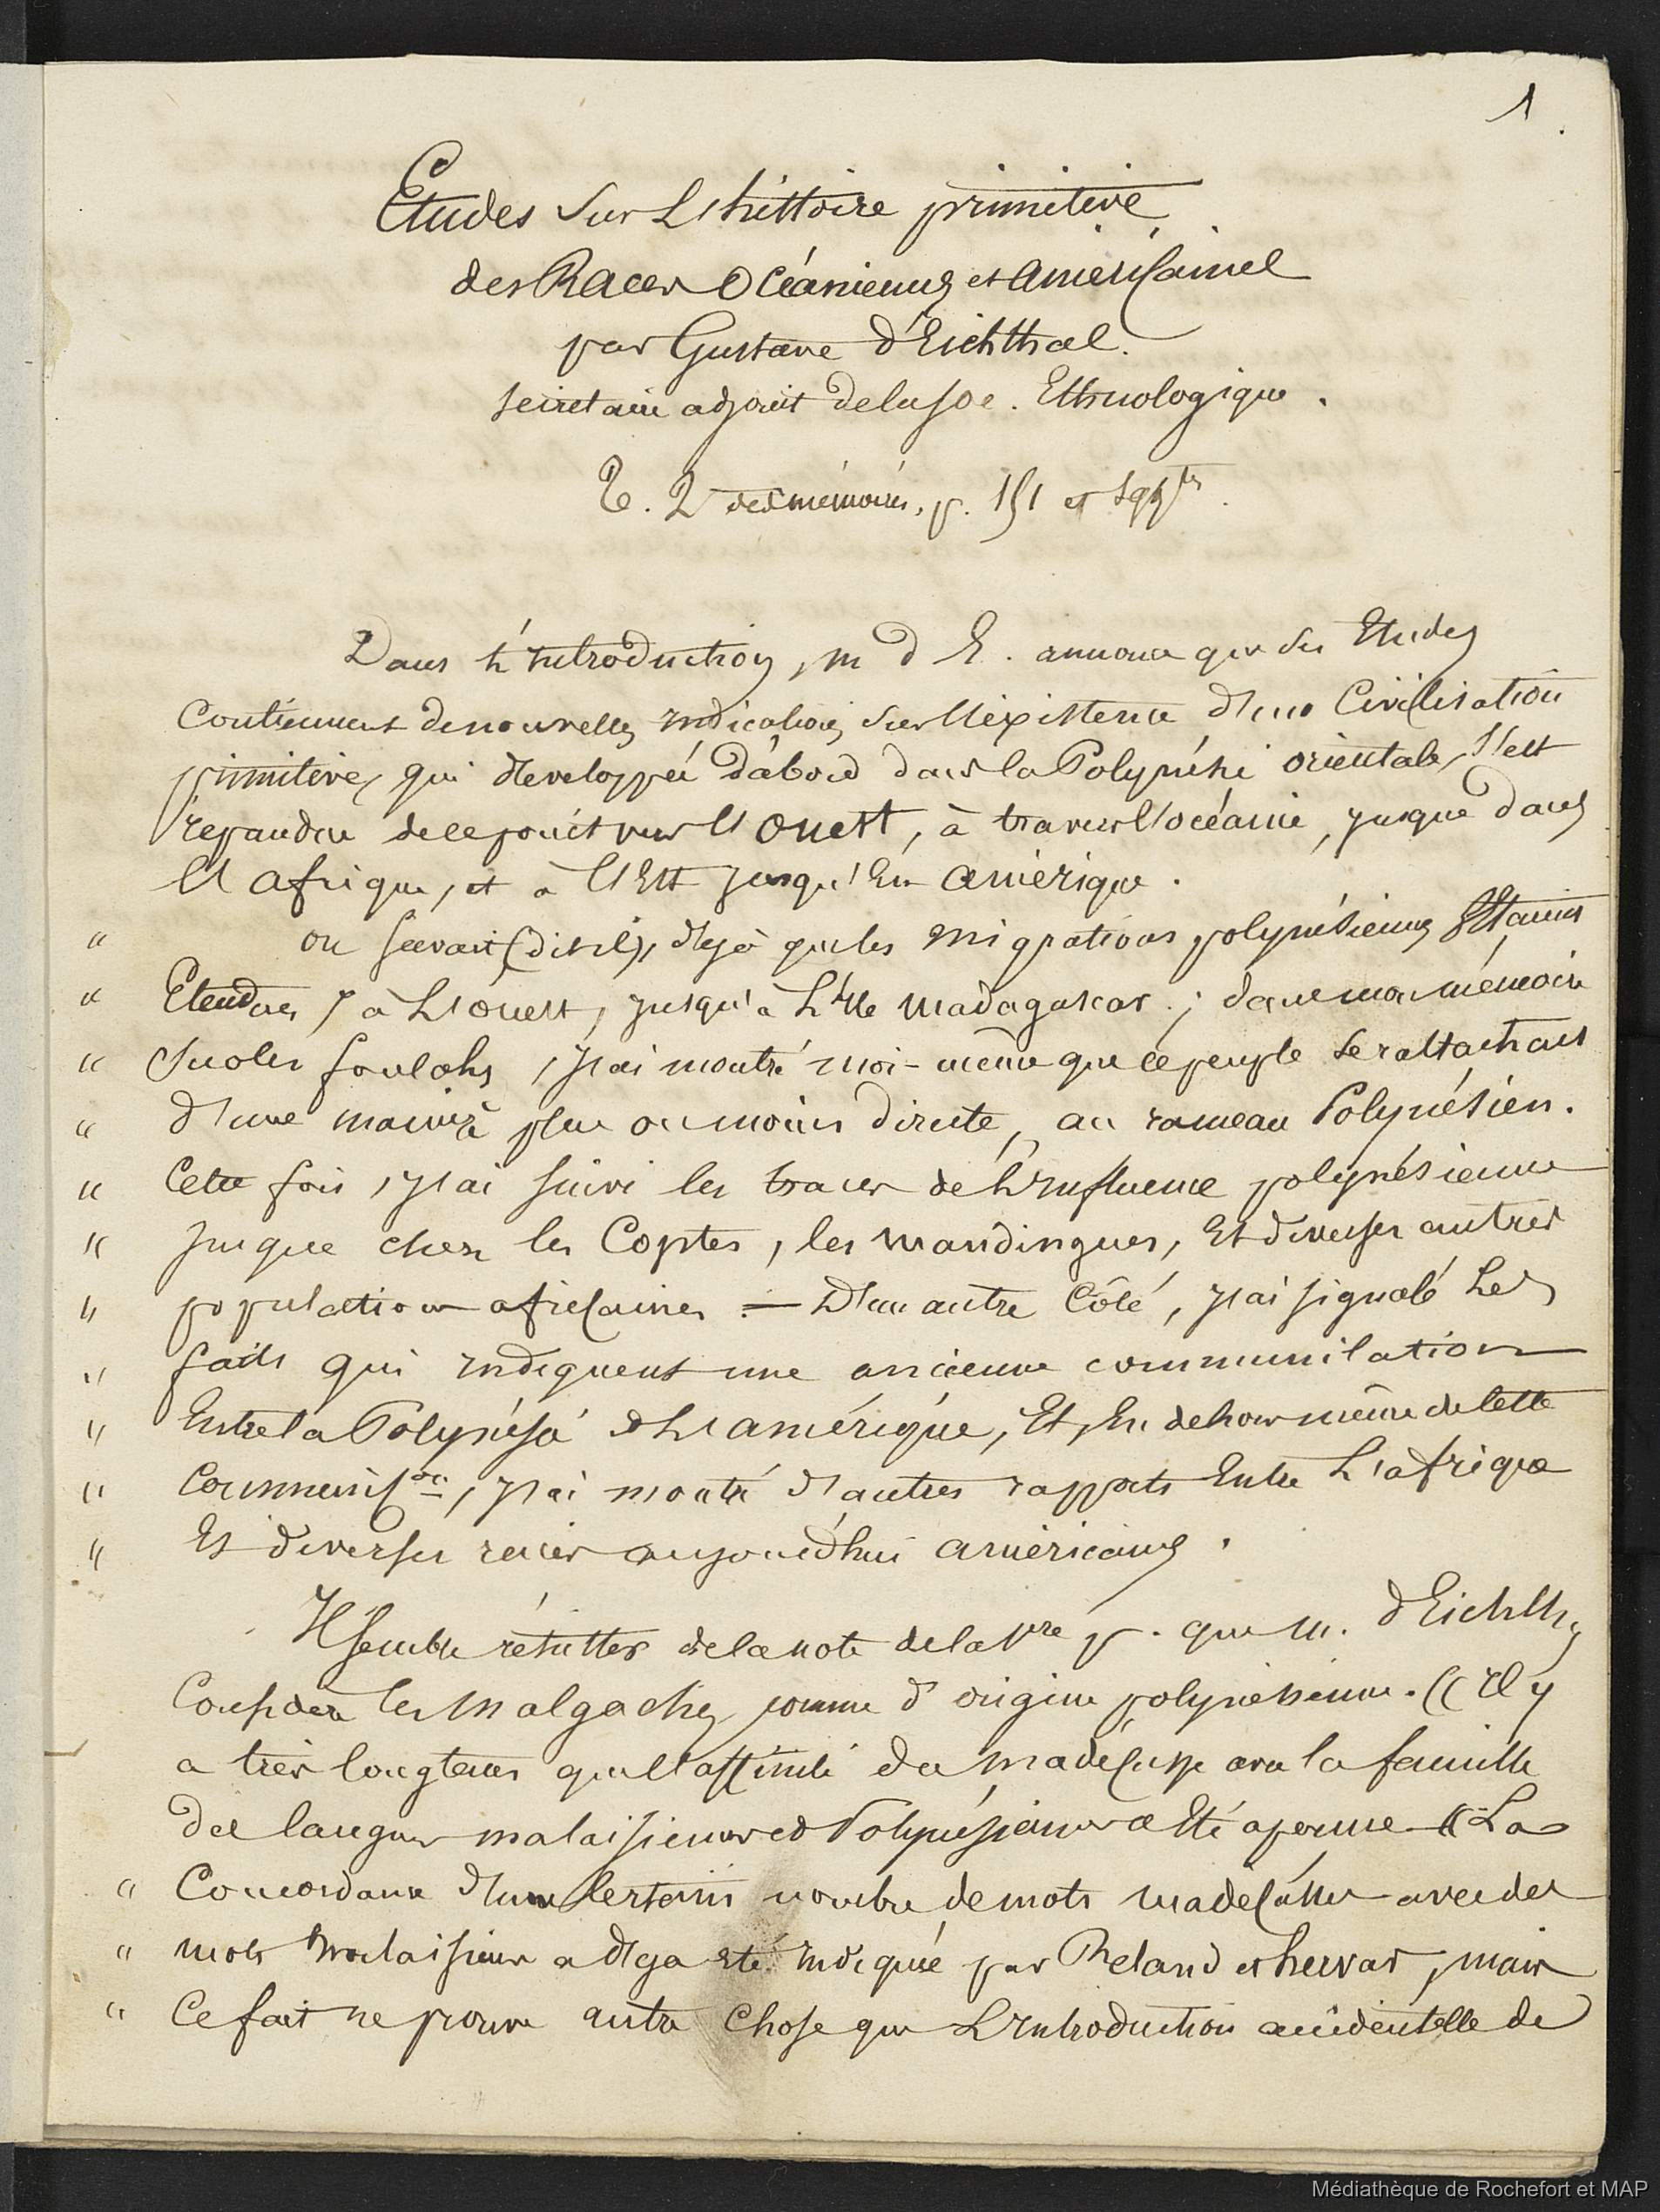 1
Etudes sur L'histoire primitive
des Races Océaniennes et américaines
par Gustave d'Eichthal.
secretaire adjoint de la soc. Ethnologique.
T. 2 des mémoires, p. 151 et sqq
Dans L'Introduction, m d E. annonce que ses Etudes
contiennent de nouvelles indications sur l'existence d'une Civilisation
primitive, qui developpée d'abord dans la Polynésie orientale, s'est
répandue de ce point vers l'ouest, à travers l'océanie, jusque dans
l'afrique, et à l'Est jusqu'En amérique.
" on savait (dit-il), deja que les migrations polynésiennes s'étaient
" Etendues, à L'ouest, jusqu'à L'Ile madagascar ; dans mon mémoire
" sur les foulahs, j'ai montré moi-même que ce peuple se rattachait
" d'une manière plus ou moins directe, au rameau Polynésien.
" Cette fois, j'ai suivi les traces de L'Influence polynésienne
" jusque chez les Coptes, les mandingues, Et diverses autres
" populations africaines. — D'un autre Côté, j'ai signalé Les
" faits qui indiquent une ancienne communication
" Entre la Polynésie et L'amérique, Et, En dehors même de cette
" Communic.on, j'ai montré d'autres rapports Entre L'afrique
" Et diverses races aujourd'hui américaines.
Il semble résulter de la note de la 1re p. que m. d'Eichth.
Considère les malgaches comme d'origine polynésienne. (( Il y
a très longtems que l'affinité du madécasse avec la famille
des langues malaisiennes et Polynésiennes a Eté aperçue (( La
" Concordance d'un certain nombre de mots madécasses avec des
" mots malaisiens a deja Eté Indiquée par Reland et hervas, mais
" Ce fait ne prouve autre Chose que L'Introduction accidentelle de
Médiathèque de Rochefort et MAP